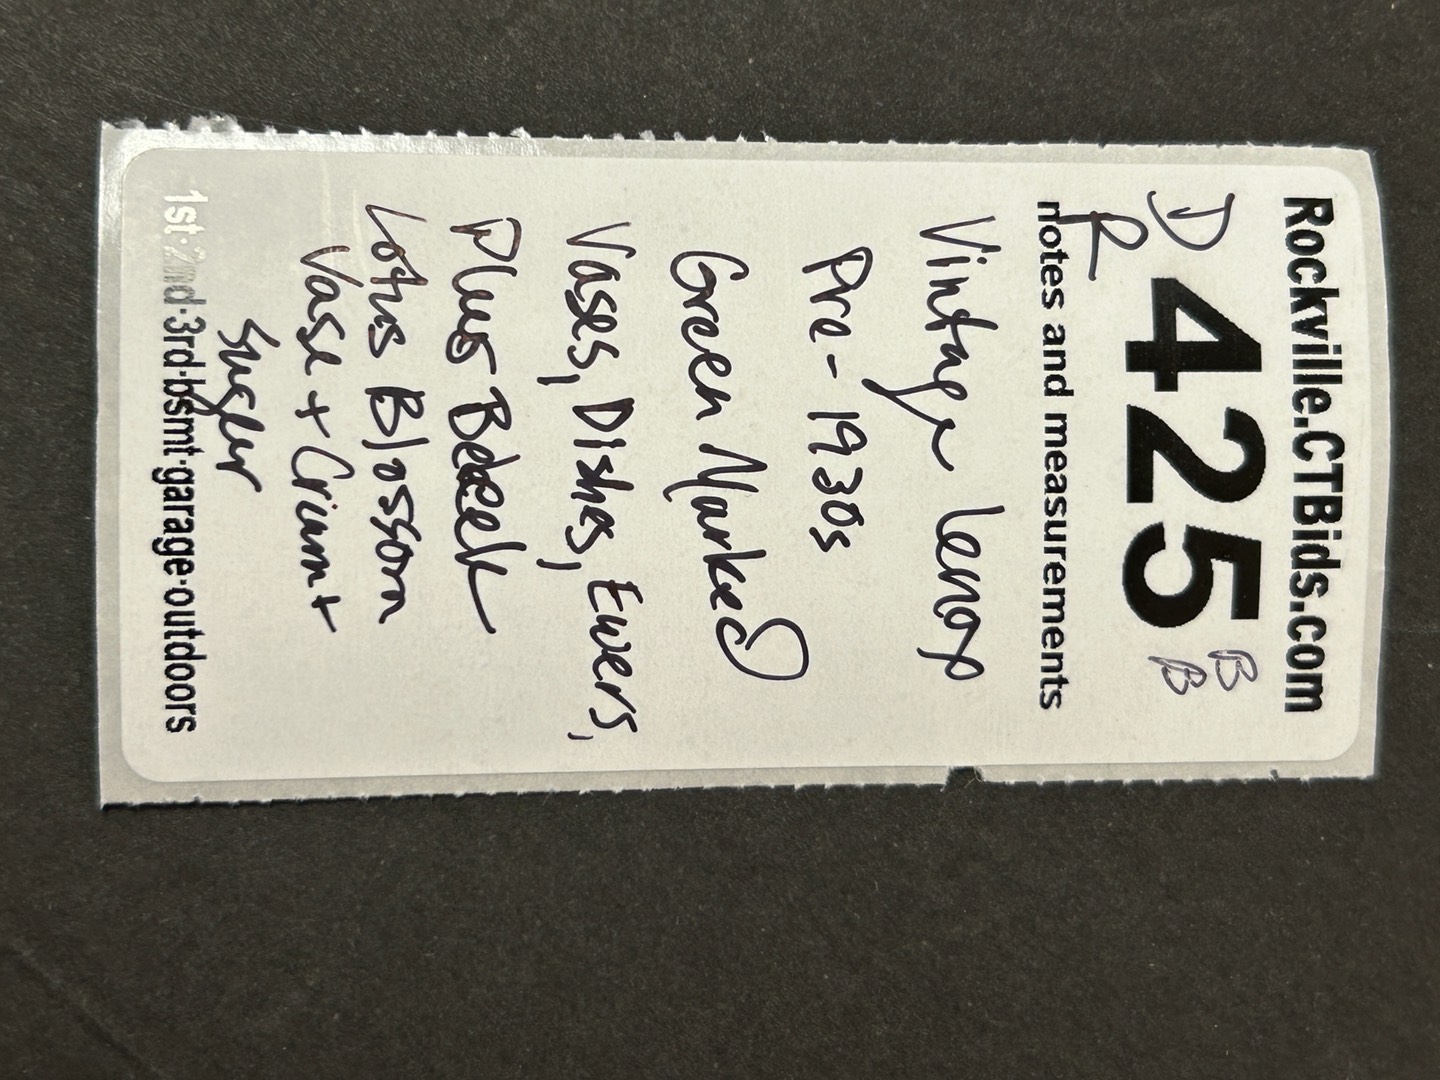 Rockville.CTBids.com
DR 425 BB
notes and measurements
Vintage Lenox
Pre-1930s
Green Marked
Vases, Dishes, Ewers,
Plus Beleek
Lotus Blossom
Vase + Cream +
Suger
1st·2nd·3rd·bsmt·garage·outdoors